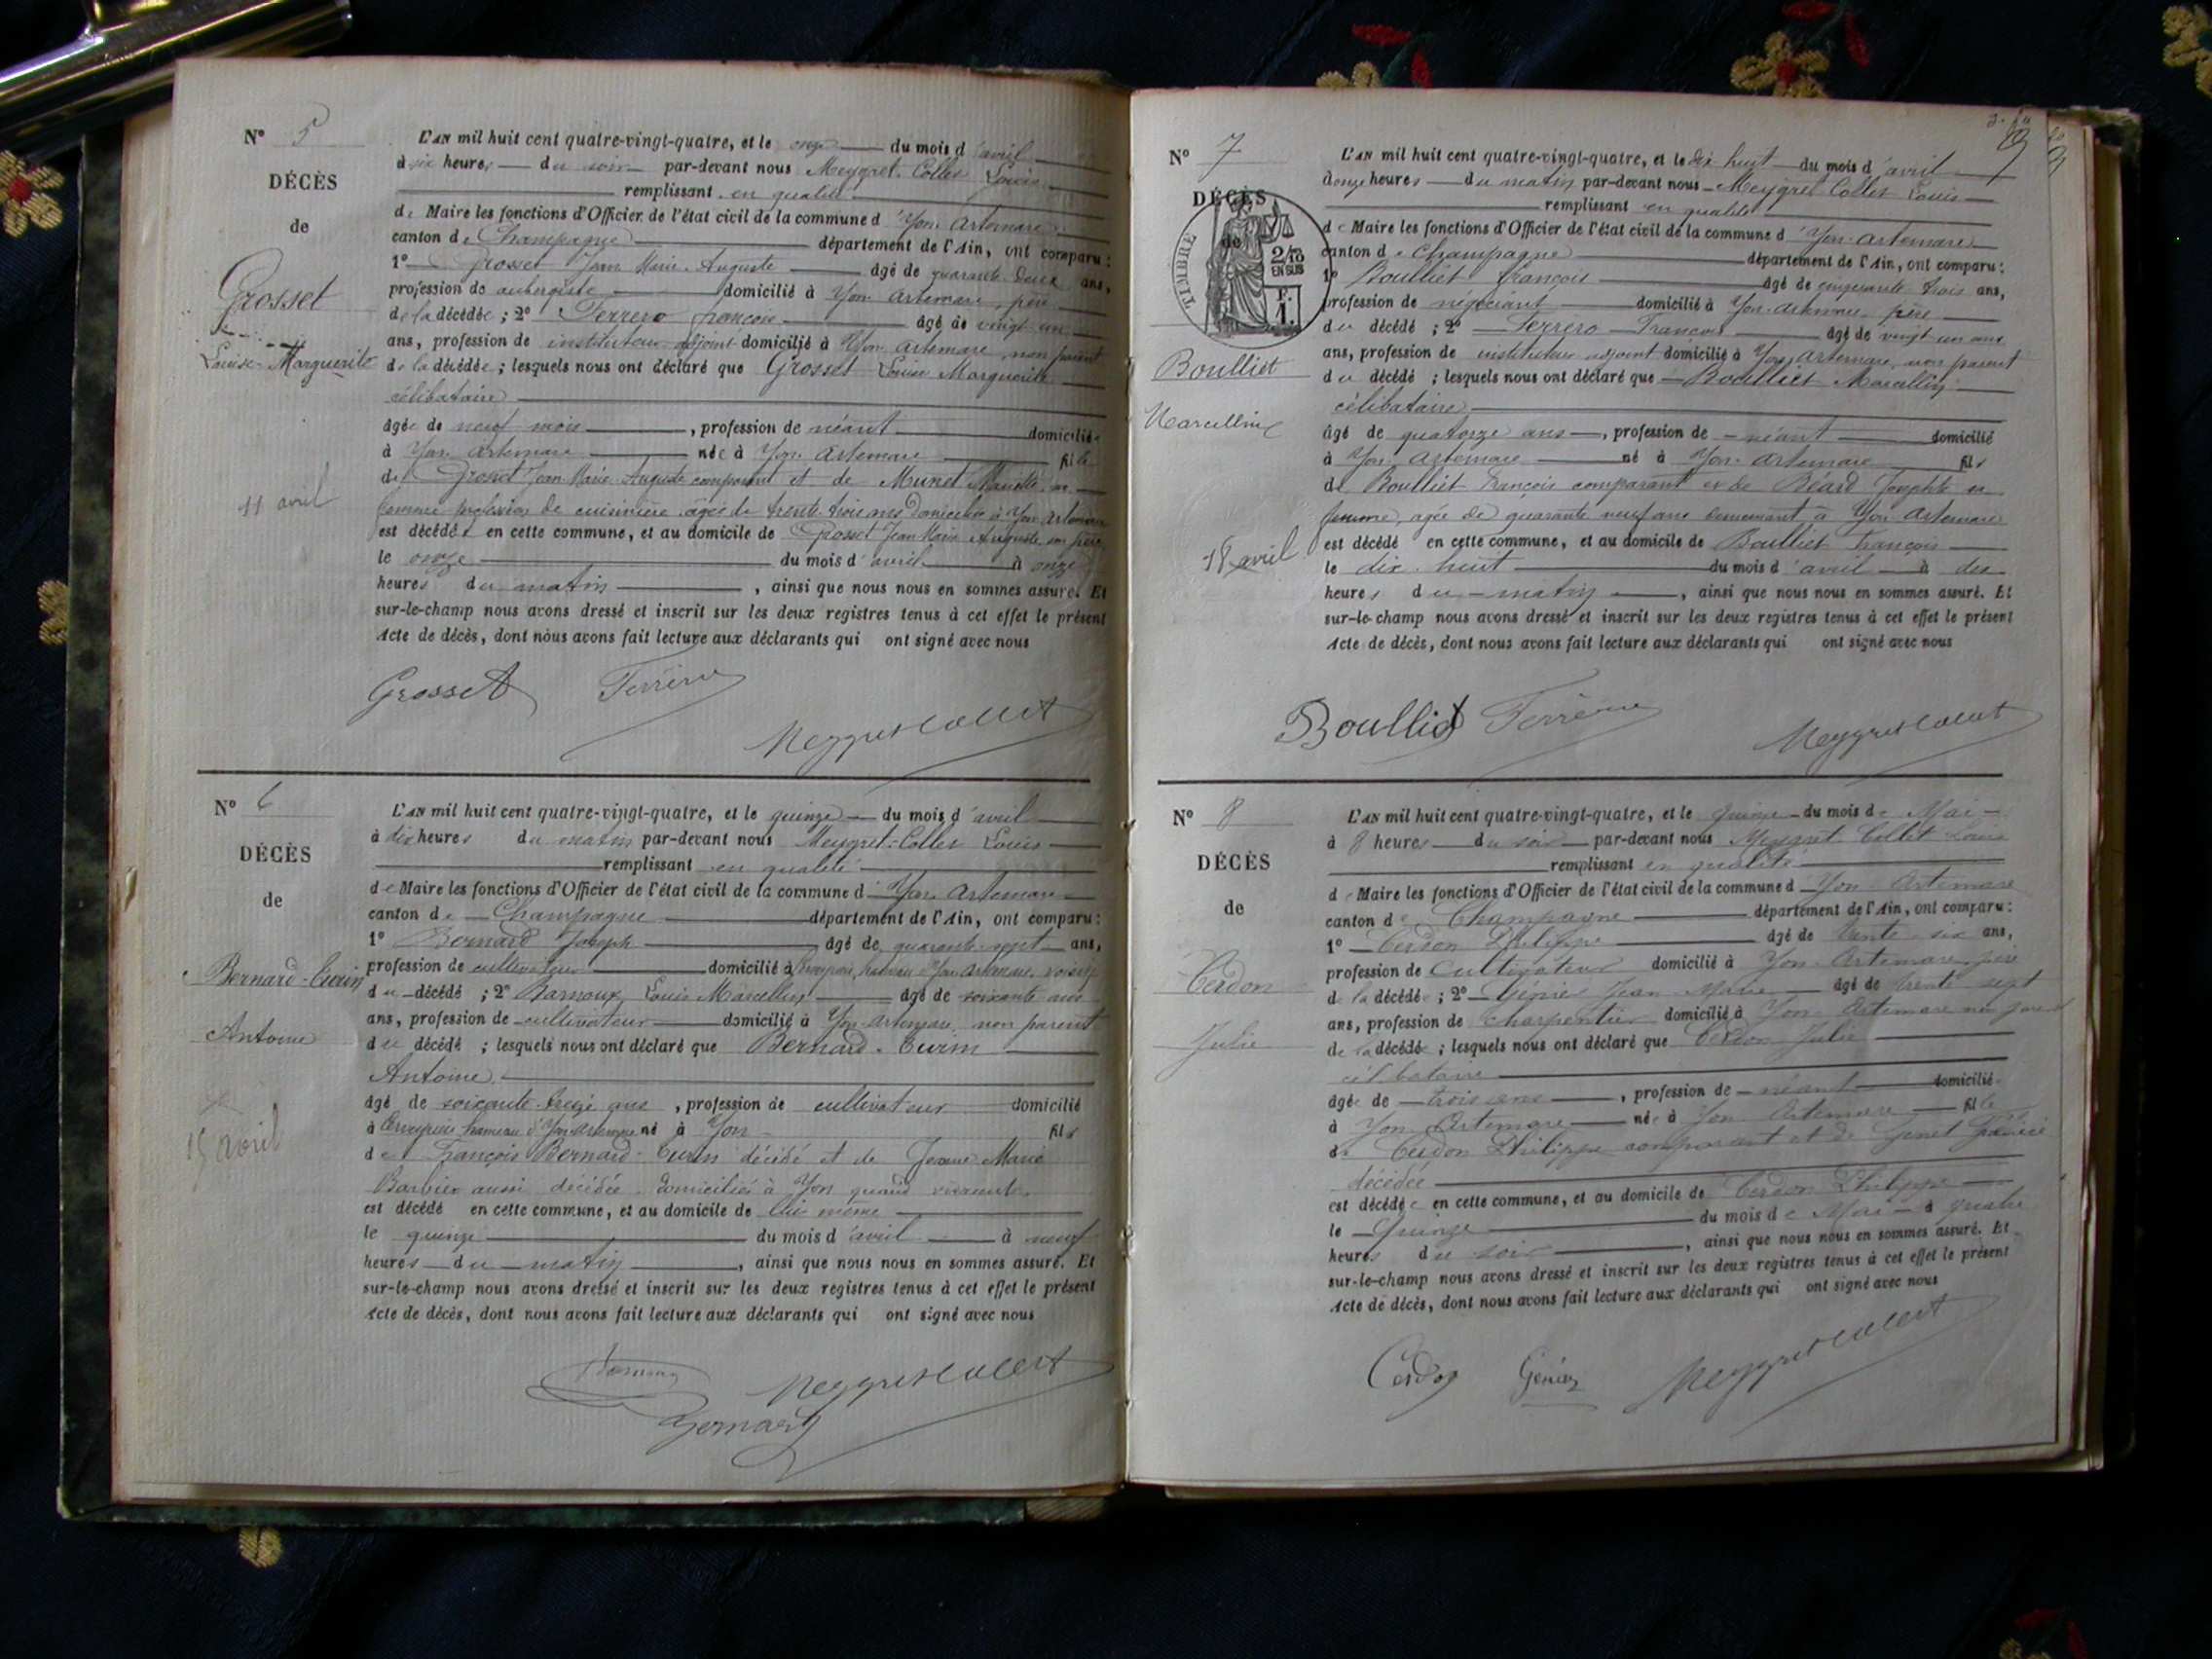 N° 5
DÉCÈS
de
Grosset
Louise Marguerite
11 avril
L'AN mil huit cent quatre-vingt-quatre, et le onze du mois d'avril
à six heures du soir par-devant nous Meygret-Collet Louis
remplissant en qualité
de Maire les fonctions d'Officier de l'état civil de la commune d'Yon-Artemare
canton de Champagne département de l'Ain, ont comparu :
1° Grosset Jean Marie Auguste âgé de quarante deux ans,
profession de aubergiste domicilié à Yon Artemare, père
de la décédée ; 2° Ferrero François âgé de vingt un
ans, profession de instituteur adjoint domicilié à Yon Artemare, non parent
de la décédée ; lesquels nous ont déclaré que Grosset Louise Marguerite
célibataire
âgée de neuf mois, profession de néant domiciliée
à Yon Artemare née à Yon Artemare fille
de Grosset Jean Marie Auguste comparant et de Munet Mariette sa
femme profession de cuisinière âgée de trente trois ans domiciliée à Yon Artemare
est décédée en cette commune, et au domicile de Grosset Jean Marie Auguste son père
le onze du mois d'avril à onze
heures du matin, ainsi que nous nous en sommes assuré. Et
sur-le-champ nous avons dressé et inscrit sur les deux registres tenus à cet effet le présent
Acte de décès, dont nous avons fait lecture aux déclarants qui ont signé avec nous
Grosset Ferrero
Meygret Collet
N° 6
DÉCÈS
de
Bernard-Turin
Antoine
15 avril
L'AN mil huit cent quatre-vingt-quatre, et le quinze du mois d'avril
à dix heures du matin par-devant nous Meygret-Collet Louis
remplissant en qualité
de Maire les fonctions d'Officier de l'état civil de la commune d'Yon-Artemare
canton de Champagne département de l'Ain, ont comparu :
1° Bernard Joseph âgé de quarante-sept ans,
profession de cultivateur domicilié à hameau d'Yon Artemare, voisin
du décédé ; 2° Barnoux Louis Marcellin âgé de soixante ans
ans, profession de cultivateur domicilié à Yon-Artemare non parent
du décédé ; lesquels nous ont déclaré que Bernard-Turin
Antoine
âgé de soixante-treize ans, profession de cultivateur domicilié
à hameau d'Yon-Artemare né à Yon fils
de François Bernard-Turin décédé et de Jeanne Marie
Barbier aussi décédée domiciliés à Yon quand vivants
est décédé en cette commune, et au domicile de lui même
le quinze du mois d'avril à neuf
heures du matin, ainsi que nous nous en sommes assuré. Et
sur-le-champ nous avons dressé et inscrit sur les deux registres tenus à cet effet le présent
Acte de décès, dont nous avons fait lecture aux déclarants qui ont signé avec nous
Meygret Collet
Bernard
N° 7
DÉCÈS
de
TIMBRE
2/10
EN SUS
F.
1.
Boulliet
Marcellin
18 avril
L'AN mil huit cent quatre-vingt-quatre, et le dix huit du mois d'avril
à onze heures du matin par-devant nous Meygret Collet Louis
remplissant en qualité
de Maire les fonctions d'Officier de l'état civil de la commune d'Yon-Artemare
canton de Champagne département de l'Ain, ont comparu :
1° Boulliet François âgé de cinquante trois ans,
profession de négociant domicilié à Yon-Artemare père
du décédé ; 2° Ferrero François âgé de vingt un ans
ans, profession de instituteur adjoint domicilié à Yon Artemare, non parent
du décédé ; lesquels nous ont déclaré que Boulliet Marcellin
célibataire
âgé de quatorze ans, profession de néant domicilié
à Yon Artemare né à Yon-Artemare fils
de Boulliet François comparant et de Béard Josephte sa
femme, agée de quarante neuf ans demeurant à Yon Artemare
est décédé en cette commune, et au domicile de Boulliet François
le dix-huit du mois d'avril à dix
heures du matin, ainsi que nous nous en sommes assuré. Et
sur-le-champ nous avons dressé et inscrit sur les deux registres tenus à cet effet le présent
Acte de décès, dont nous avons fait lecture aux déclarants qui ont signé avec nous
Boulliet Ferrero
Meygret Collet
N° 8
DÉCÈS
de
Cerdon
Julie
L'AN mil huit cent quatre-vingt-quatre, et le quinze du mois de Mai
à 8 heures du soir par-devant nous Meygret Collet Louis
remplissant en qualité
de Maire les fonctions d'Officier de l'état civil de la commune d'Yon-Artemare
canton de Champagne département de l'Ain, ont comparu :
1° Cerdon Philippe âgé de trente-six ans,
profession de Cultivateur domicilié à Yon-Artemare père
de la décédée ; 2° Génier Jean Marie âgé de trente sept
ans, profession de Charpentier domicilié à Yon-Artemare non parent
de la décédée ; lesquels nous ont déclaré que Cerdon Julie
célibataire
âgée de trois ans, profession de néant domiciliée
à Yon Artemare née à Yon Artemare fille
de Cerdon Philippe comparant et de
décédée
est décédée en cette commune, et au domicile de Cerdon Philippe
le Quinze du mois de Mai à quatre
heures du soir, ainsi que nous nous en sommes assuré. Et
sur-le-champ nous avons dressé et inscrit sur les deux registres tenus à cet effet le présent
Acte de décès, dont nous avons fait lecture aux déclarants qui ont signé avec nous
Cerdon Génier Meygret Collet